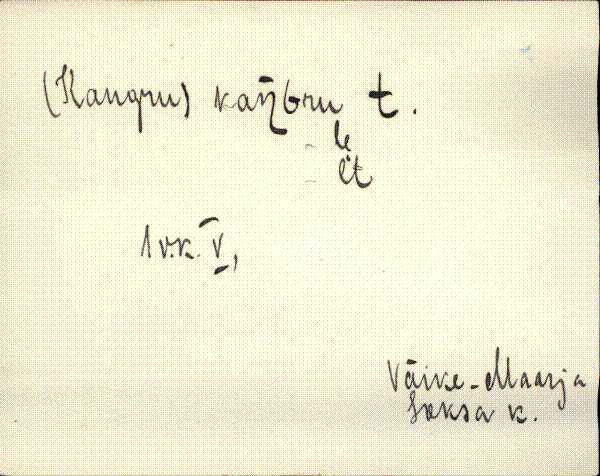 (Kangru) kaŋ̀Gru t.
le
lt
1 v.k. V,
Väike-Maarja
Soksa k.